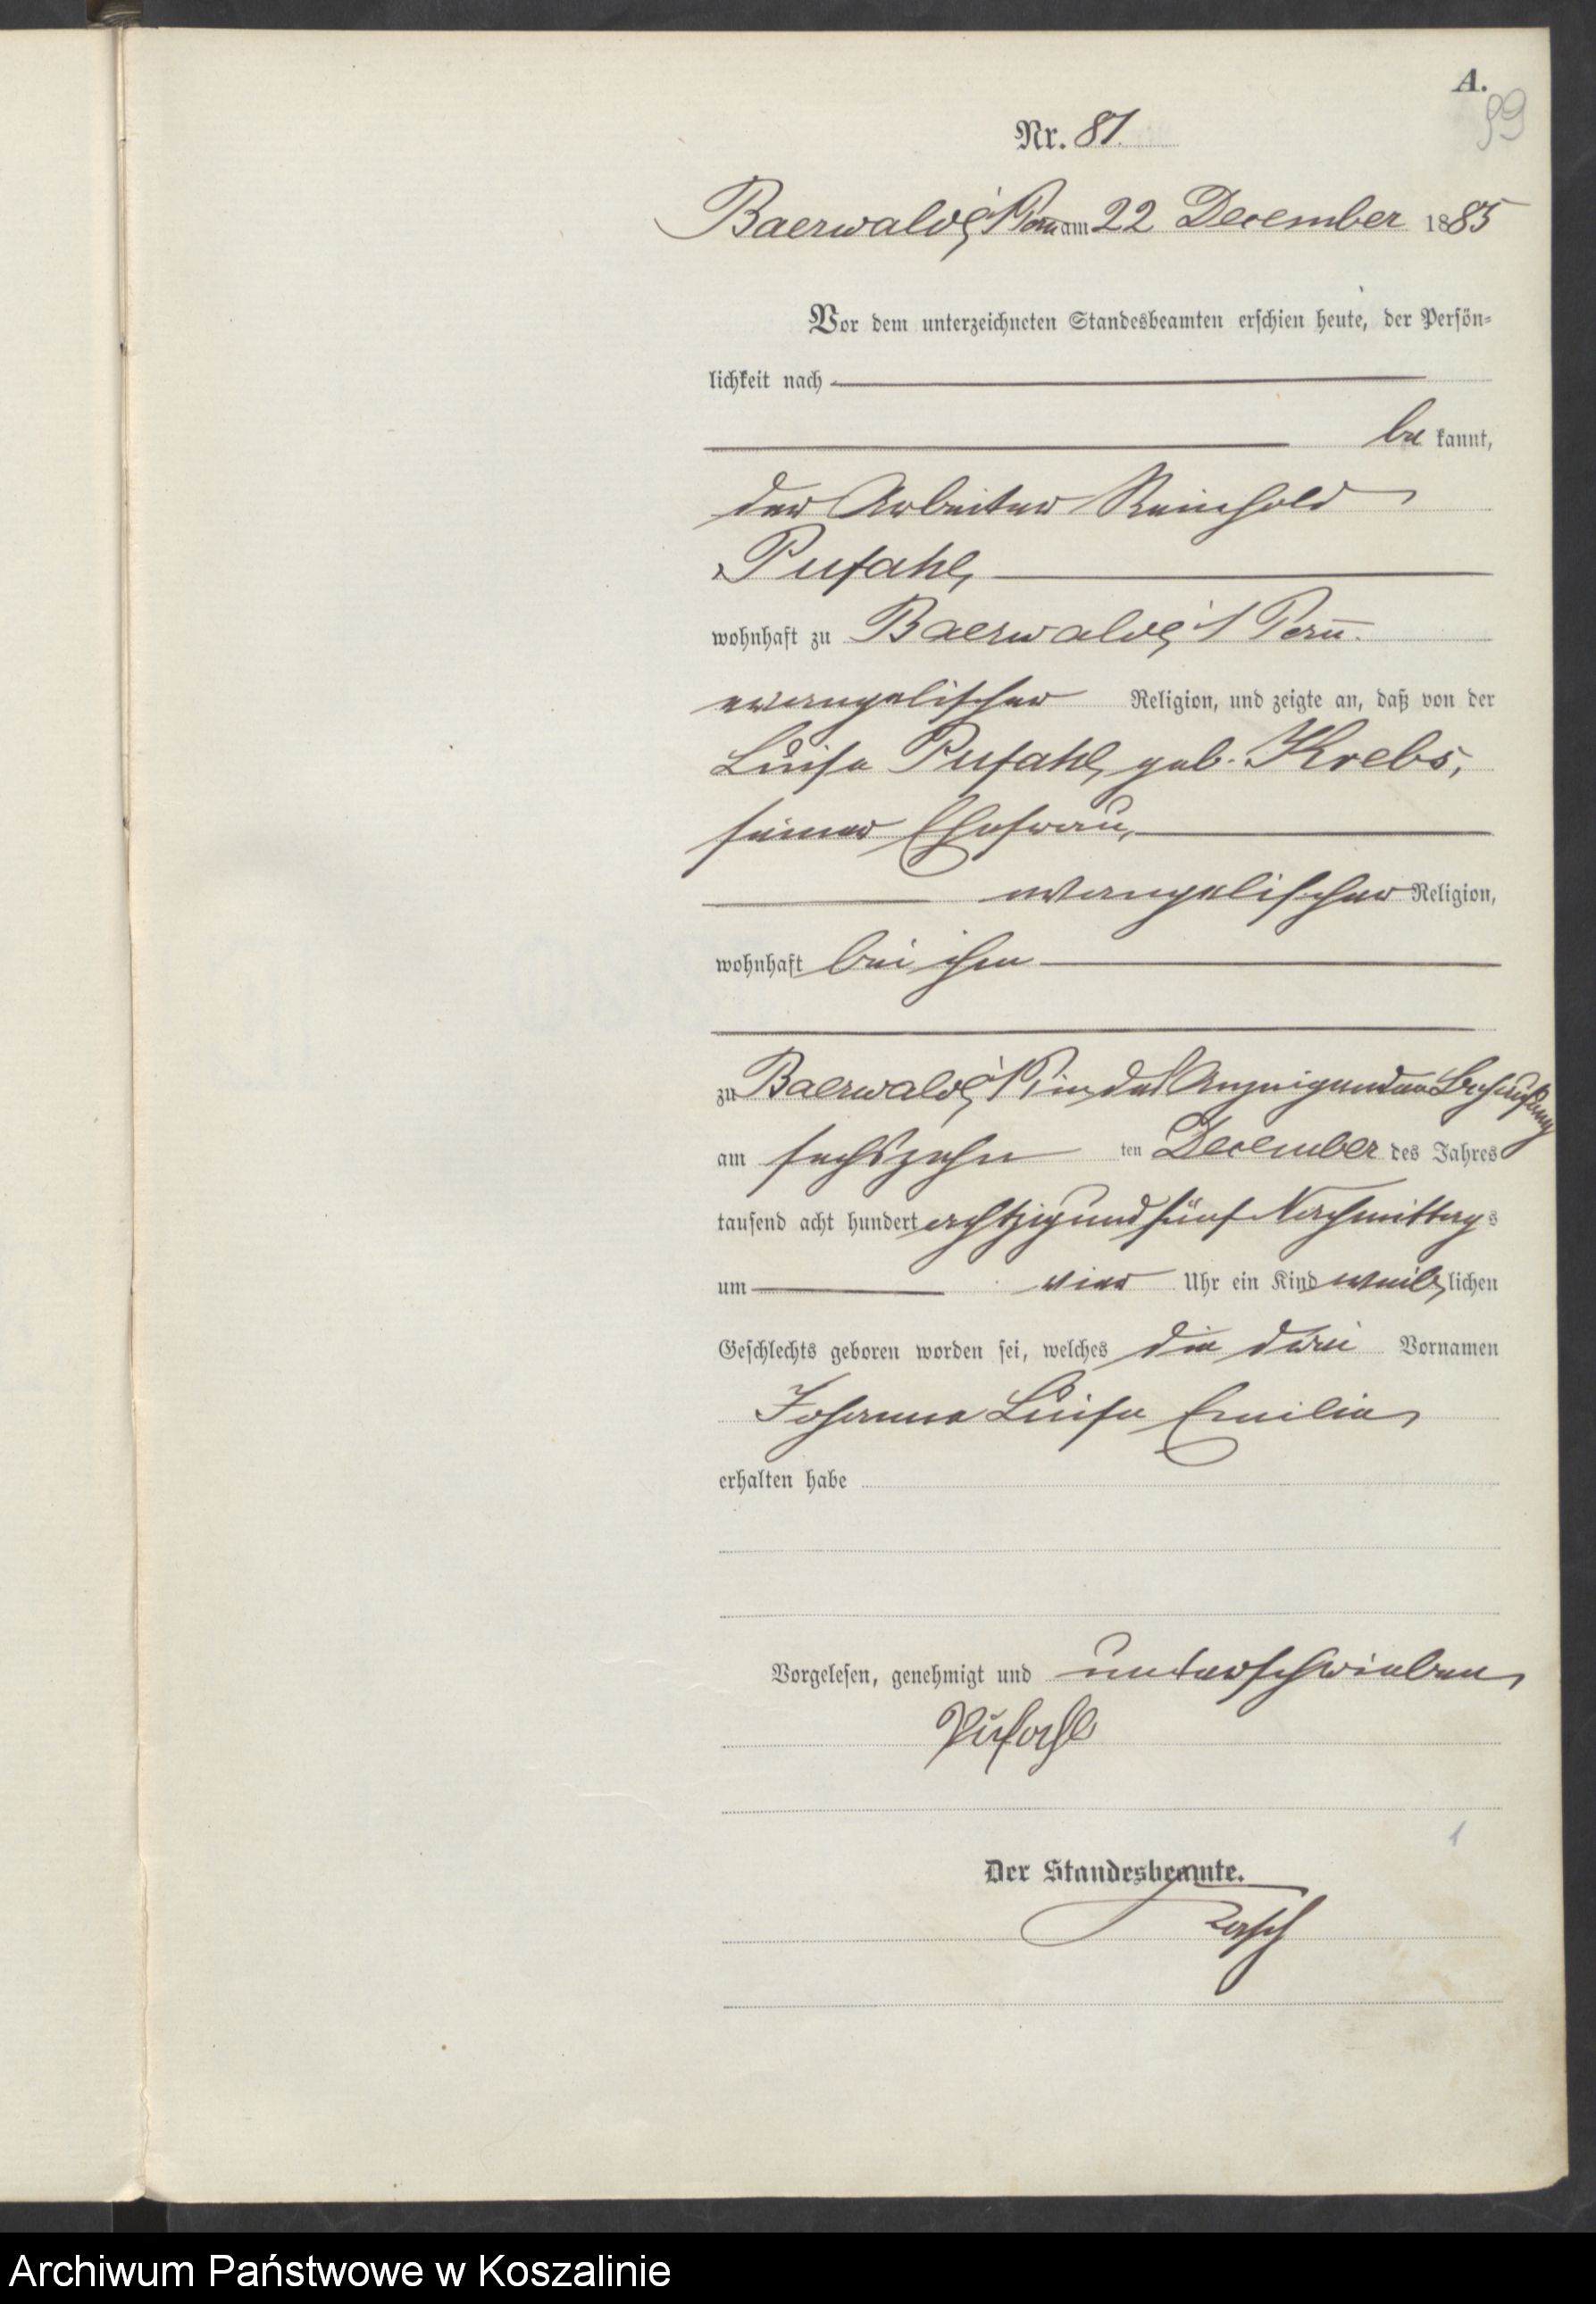 A.
99
Nr. 81.
Baerwalde i/Pom am 22 December 1885
Vor dem unterzeichneten Standesbeamten erschien heute, der Persön-
lichkeit nach
be kannt,
der Arbeiter Reinhold
Pufahl,
wohnhaft zu Baerwalde i/Pom.
evangelischer Religion, und zeigte an, daß von der
Luise Pufahl, geb. Krebs,
seiner Ehefrau,
evangelischer Religion,
wohnhaft bei ihm
zu Baerwalde i/P, in des Anzeigenden Behausung
am sechszehn ten December des Jahres
tausend acht hundert achtzig und fünf Nachmittag s
um vier Uhr ein Kind weib lichen
Geschlechts geboren worden sei, welches die drei Vornamen
Johanna Luise Emilie
erhalten habe
Vorgelesen, genehmigt und unterschrieben
Pufahl
1
Der Standesbeamte.
Archiwum Państwowe w Koszalinie